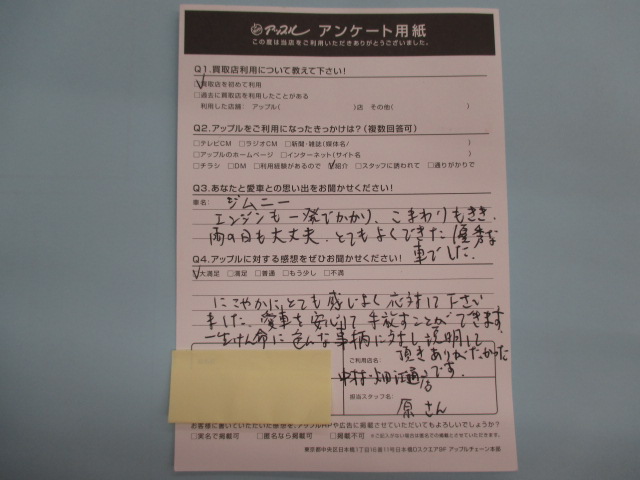 アップル アンケート用紙
この度は当店をご利用いただきありがとうございました。
Q1.買取店利用について教えて下さい!
□買取店を初めて利用
□過去に買取店を利用したことがある
利用した店舗: アップル( )店 その他( )
Q2.アップルをご利用になったきっかけは?(複数回答可)
□テレビCM □ラジオCM □新聞・雑誌(媒体名/ )
□アップルのホームページ □インターネット(サイト名 )
□チラシ □DM □利用経験があるので □紹介 □スタッフに誘われて □通りがかりで
Q3.あなたと愛車との思い出をお聞かせください!
車名: ジムニー
エンジンも一発でかかり、こまわりもきき、
雨の日も大丈夫、とてもよくできた優秀な
車でした。
Q4.アップルに対する感想をぜひお聞かせください!
□大満足 □満足 □普通 □もう少し □不満
にこやかにとても感じよく応対して下さい
ました。愛車を安心して手放すことができます。
一生けん命に色んな事柄に 説明して
頂きありがたかった
です。
ご利用店名:
中村・畑江通り店
担当スタッフ名:
原さん
お客様に書いていただいた感想を、アップルHPや広告に掲載させていただいてもよろしいでしょうか?
□実名で掲載可 □匿名なら掲載可 □掲載不可 ※ご記入がない場合は匿名での掲載とさせていただきます。
東京都中央区日本橋1丁目16番11号日本橋Dスクエア9F アップルチェーン本部